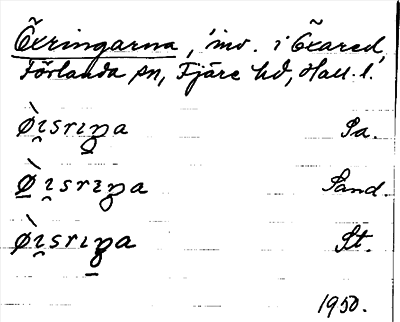 Öxringarna, inv. i Öxared,
Förlanda sn, Fjäre hd, Hall. l.
Ø̀i̯srıŋa Sa.
Ø̀i̯srıŋa Sand.
Ø̀i̯srıŋa St.
1950.